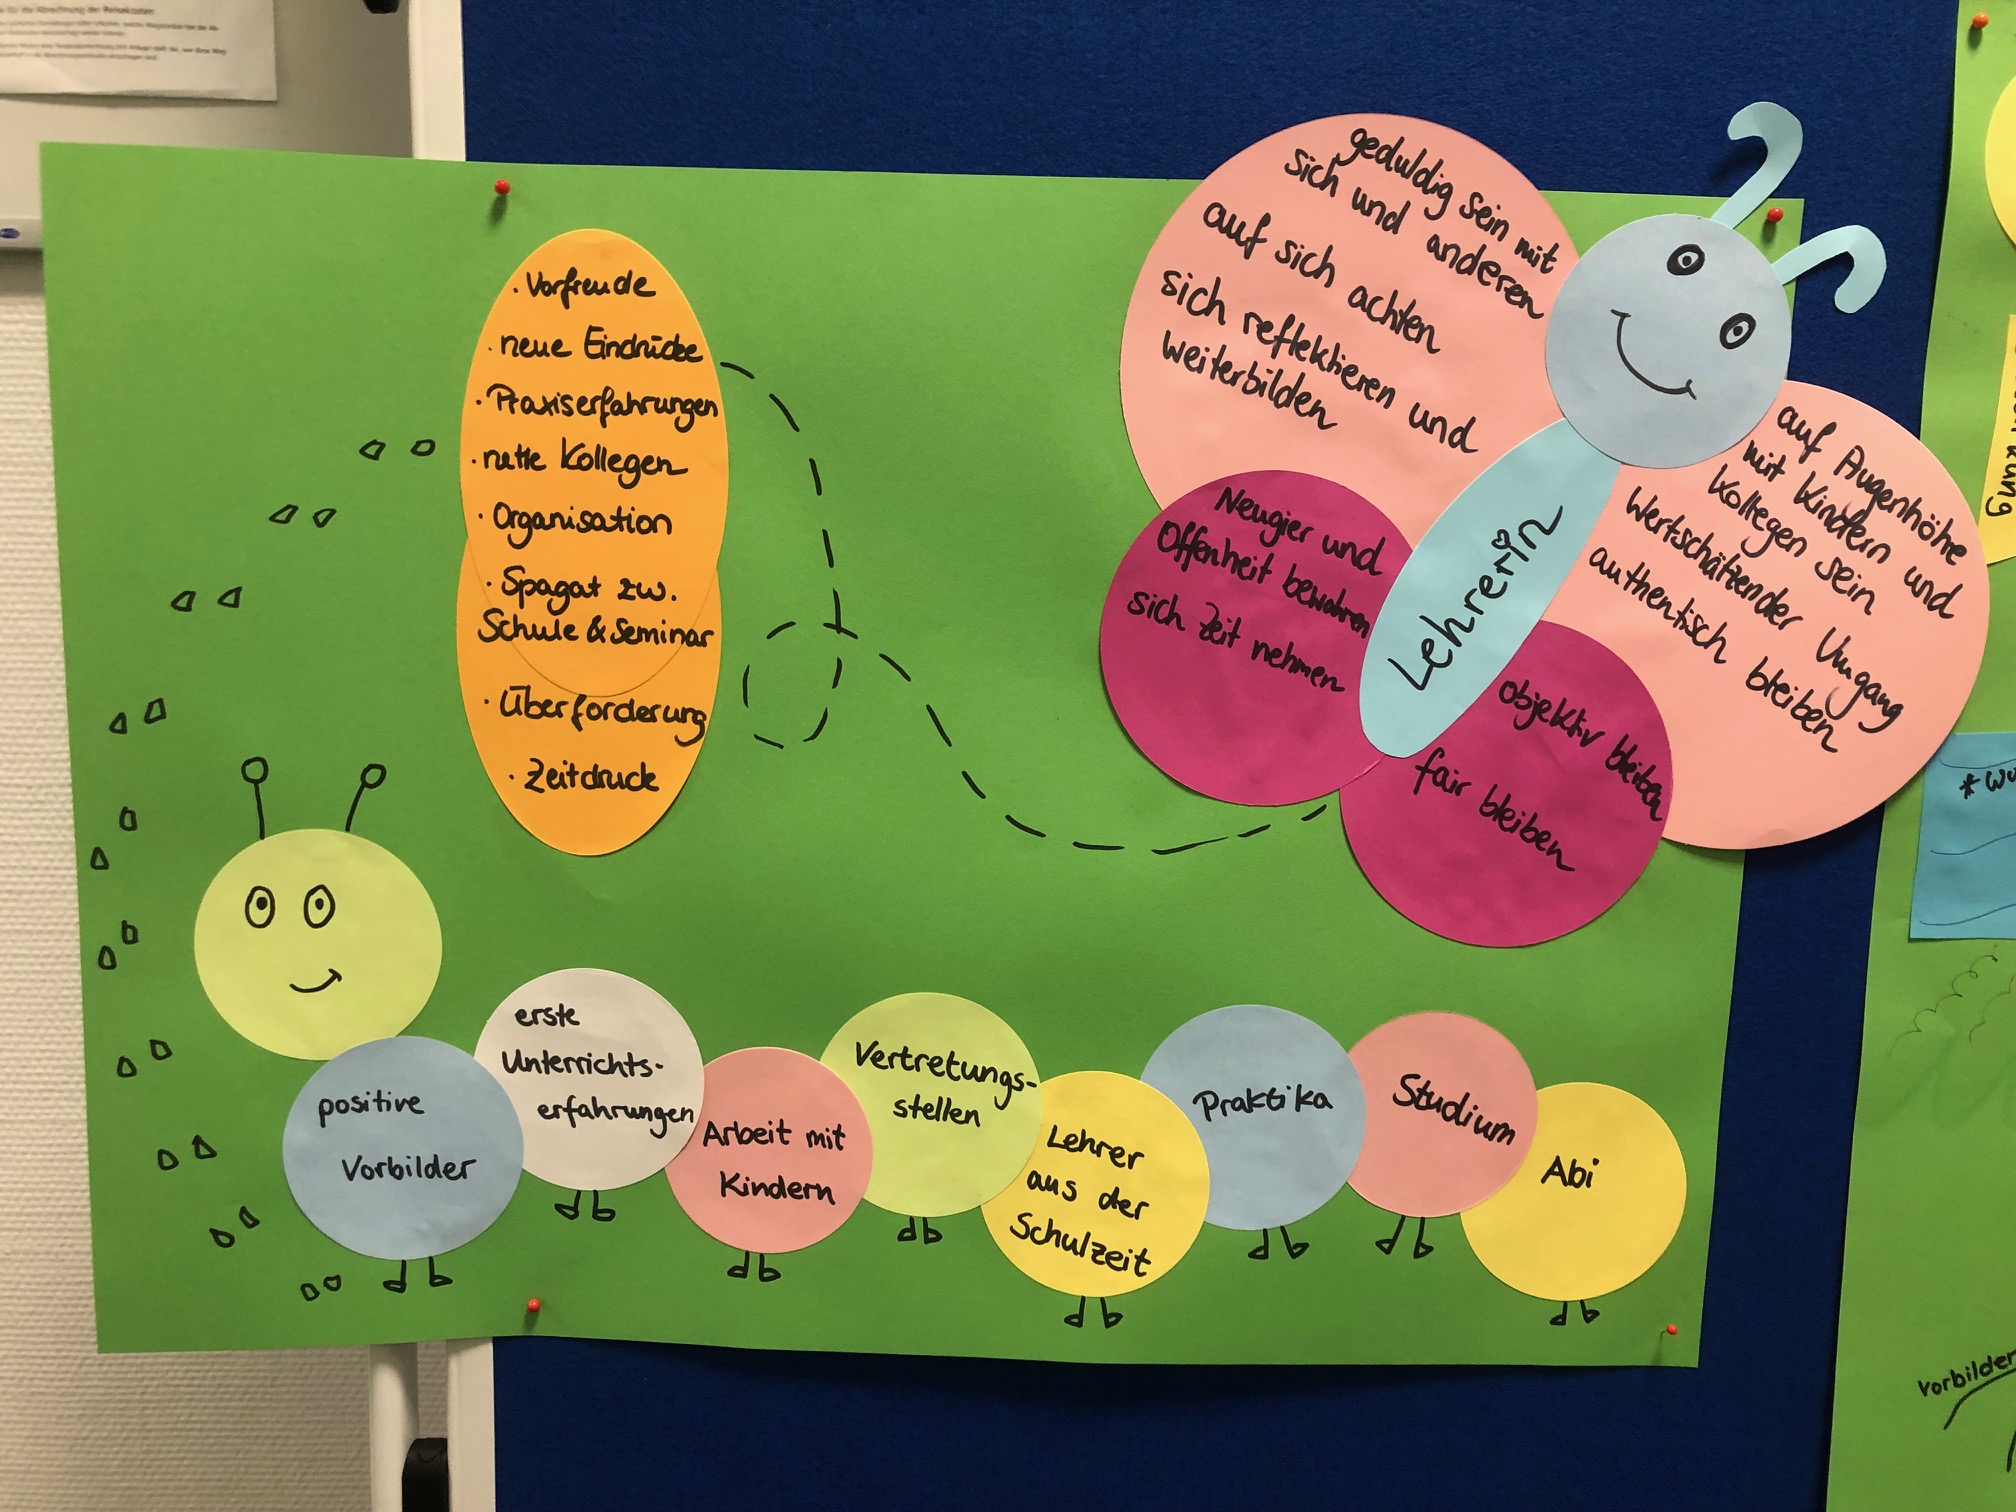 für die Abrechnung der Reisekosten
· Vorfreude
· neue Eindrücke
· Praxiserfahrungen
· nette Kollegen
· Organisation
· Spagat zw.
Schule & Seminar
· Überforderung
· Zeitdruck
geduldig sein mit
sich und anderen
auf sich achten
sich reflektieren und
weiterbilden
Neugier und
Offenheit bewahren
sich Zeit nehmen
Lehrerin
auf Augenhöhe
mit Kindern und
Kollegen sein
Wertschätzender Umgang
authentisch bleiben
objektiv bleiben
fair bleiben
positive
Vorbilder
erste
Unterrichts-
erfahrungen
Arbeit mit
Kindern
Vertretungs-
stellen
Lehrer
aus der
Schulzeit
Praktika
Studium
Abi
Vorbilder